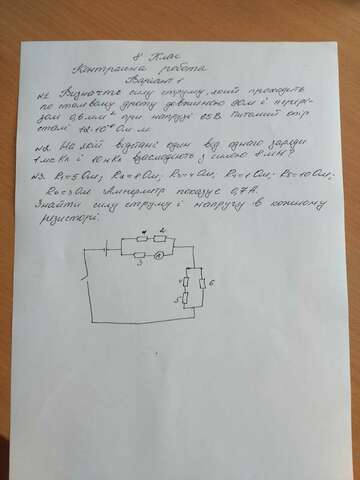 8 Клас
Контрольна робота
Варіант 1
№1. Визначть силу струму, який проходить
по сталевому дроту довжиною 90м і перері-
зом 0,6мм² при напрузі 85В. Питомий опір
сталі 12·10⁻⁸ Ом м.
№2. На якій відстані один від одного заряди
1 мкКл і 10нКл взаємодіють з силою 8мН?
№3. R₁=5Ом; R₂=8Ом; R₃=4Ом; R₄=1Ом; R₅=10Ом;
R₆=3Ом Амперметр показує 0,7А.
Знайти силу струму і напругу в кожному
резисторі.
1 2
3 A
4
5
6